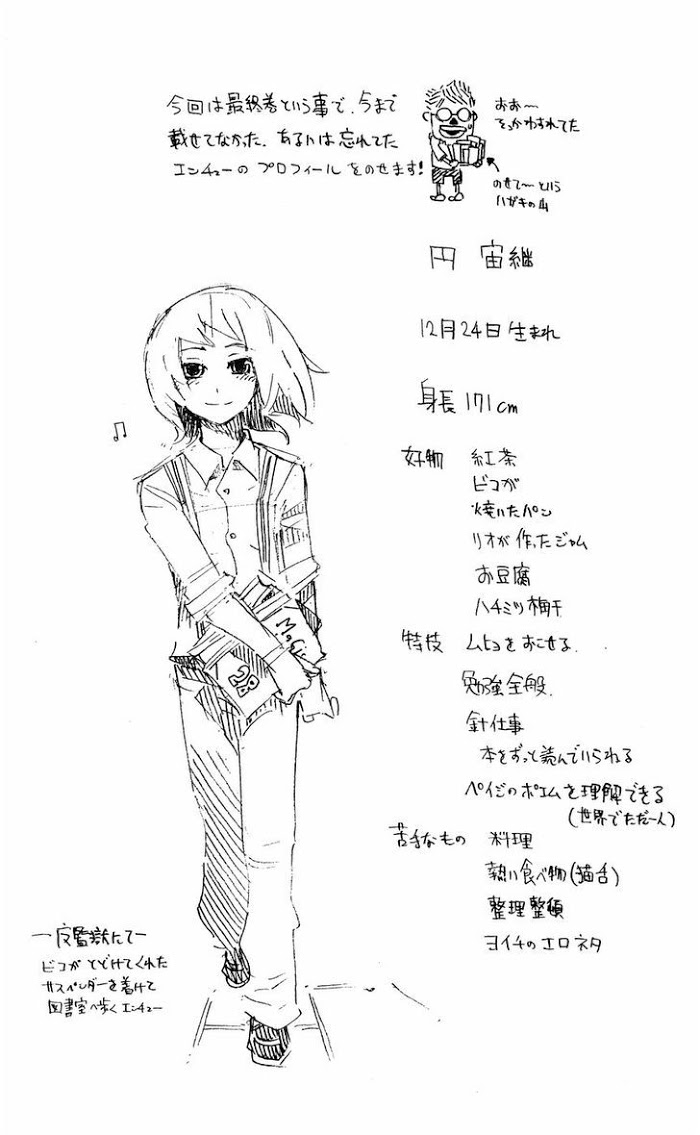 今回は最終巻という事で、今まで
載せてなかった、あるいは忘れてた
エンチューのプロフィールをのせます!
おお〜
のせて〜という
ハガキの山
円 宙継
12月24日生まれ
身長 171cm
好物 紅茶
ビコが
焼いたパン
リオが作ったジャム
お豆腐
ハチミツ梅干
特技 ムヒョをおこせる。
勉強全般。
針仕事
本をずっと読んでいられる
ペイジのポエムを理解できる
(世界でただ一人)
苦手なもの 料理
熱い食べ物(猫舌)
整理整頓
ヨイチのエロネタ
♫
28
ビコがとどけてくれた
サスペンダーを着けて
図書室へ歩くエンチュー